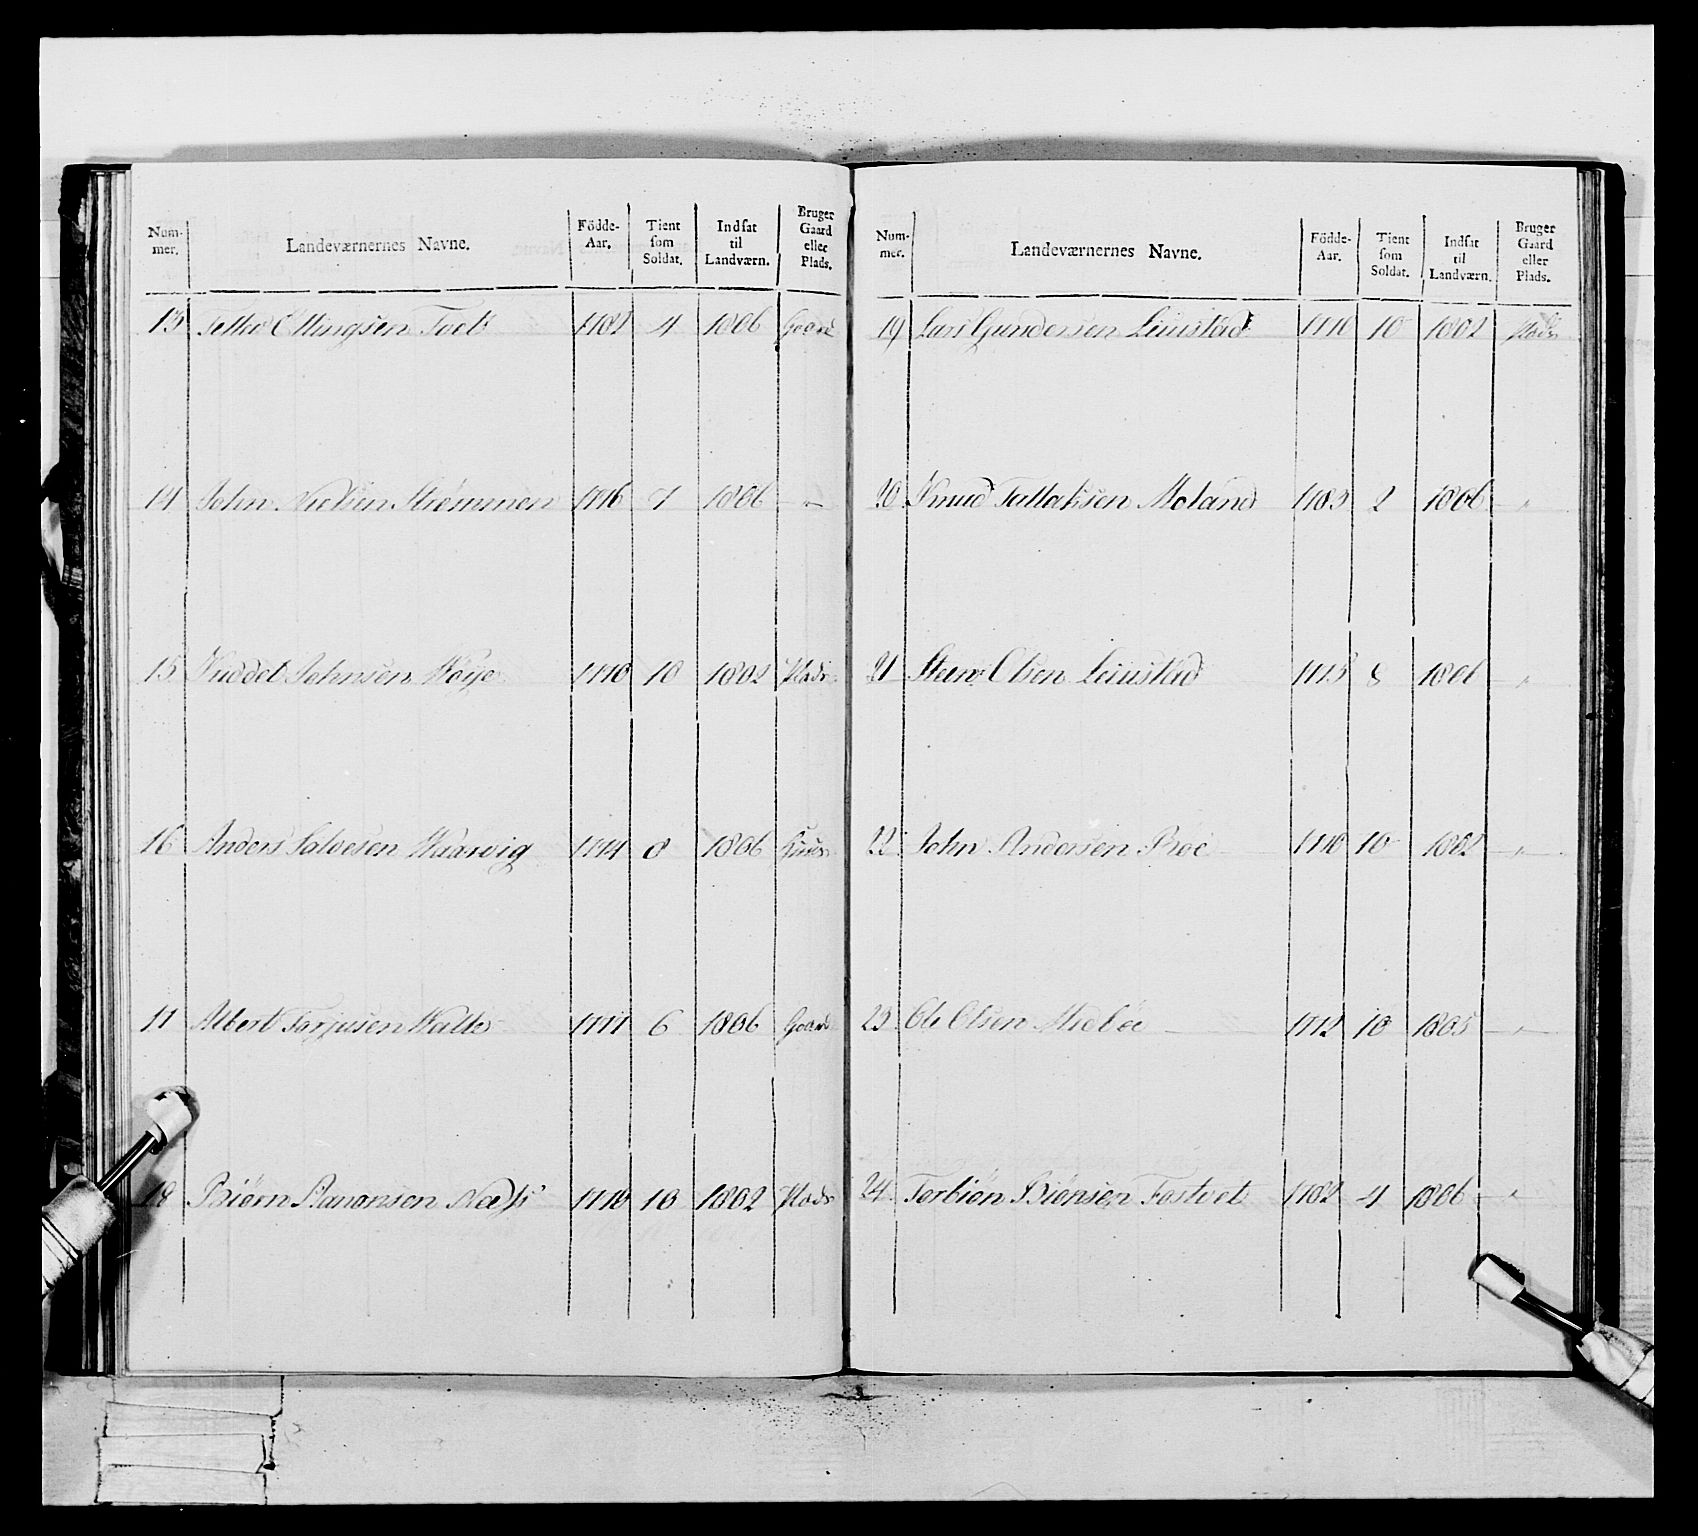 Num-mer. Landeværnernes Navne. Födde-Aar. Tient som Soldat. Indsat til Landværn. Bruger Gaard eller Plads.
13 Ellingsen 1782 4 1806 Gaard
14 John Nielsen Strømmen 1776 7 1806 — " —
15 Johnsen 1770 10 1802 Plads
16 Anders Salvesen 1774 8 1806 Huus
17 Albert Torjusen 1777 6 1806 Gaard
18 Biörn Aanonsen Næss 1770 10 1802 Plads
Num-mer. Landeværnernes Navne. Födde-Aar. Tient som Soldat. Indsat til Landværn. Bruger Gaard eller Plads.
19 Lars Gundersen Leiustad 1770 10 1802 Plads
20 Knud Tallaksen Moland 1783 2 1806 — " —
21 Olsen Leiustad 1775 8 1806 — " —
22 John Andersen Roe 1770 10 1802 — " —
23 Ole Olsen Midböe 1772 10 1805 — " —
24 Torbiön Biönsen Fostvet 1782 4 1806 — " —